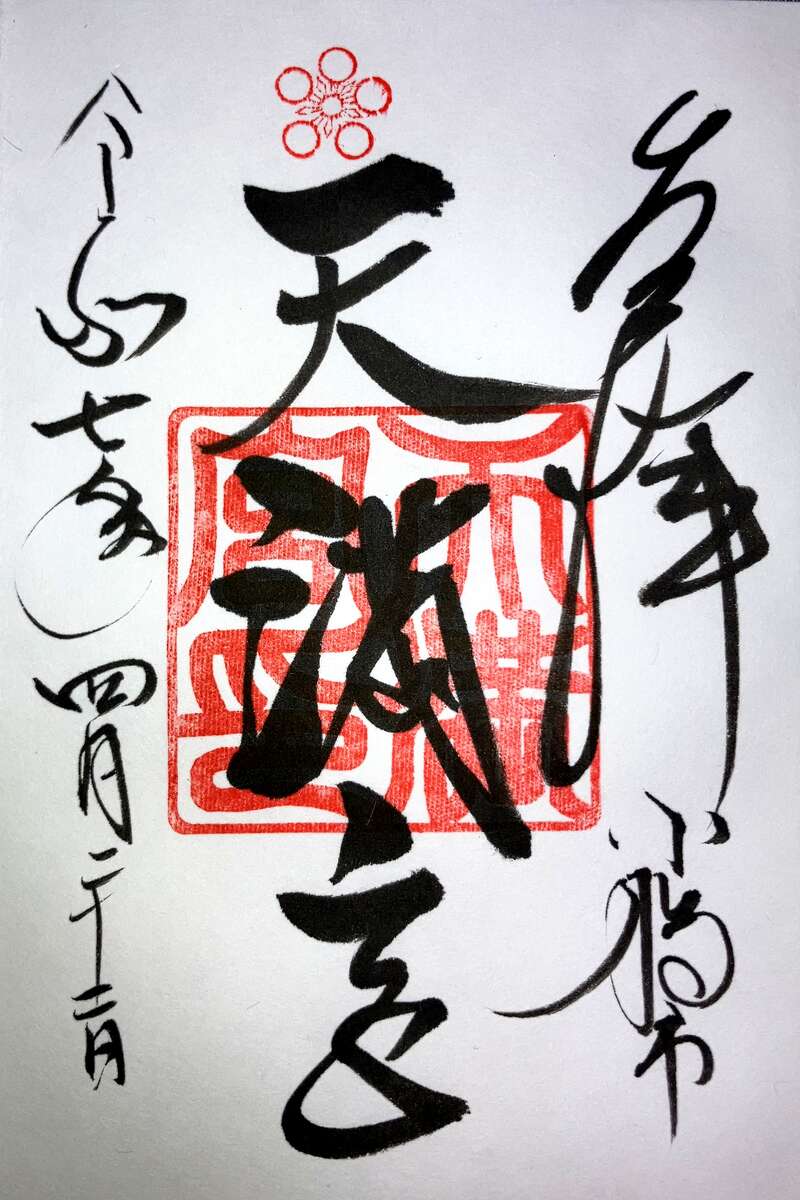 奉拝 小樽市
天満宮
天満宮印
令和七年四月二十二日